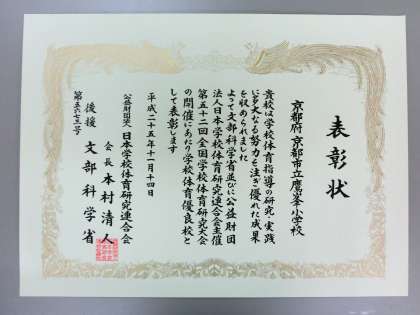 表彰状
京都府 京都市立鷹峯小学校
貴校は学校体育指導の研究・実践
に多大なる努力を注ぎ優れた成果
を収められました
よって文部科学省並びに公益財団
法人日本学校体育研究連合会主催
第五十二回全国学校体育研究大会
の開催にあたり学校体育優良校と
して表彰します
平成二十五年十一月十四日
公益財団法人 日本学校体育研究連合会
会長 本村清人
後援 文部科学省
第五六七三号